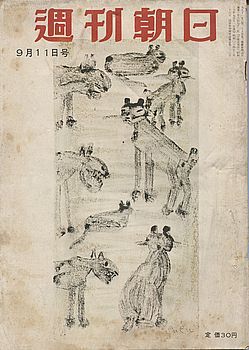 週刊朝日
9月11日号
定価30円